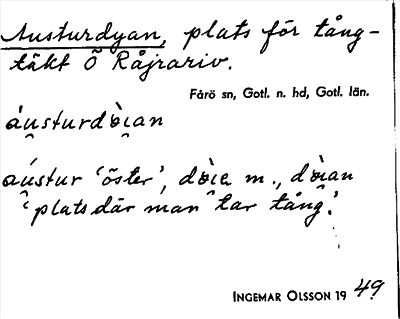 Austurdyan, plats för tång-
täkt Ö Råjrariv.
Fårö sn, Gotl. n. hd, Gotl. län.
àu̯sturdòi̯an
áu̯stur 'öster', dòi̯e m., dòi̯an
'plats där man tar tång'.
INGEMAR OLSSON 1949